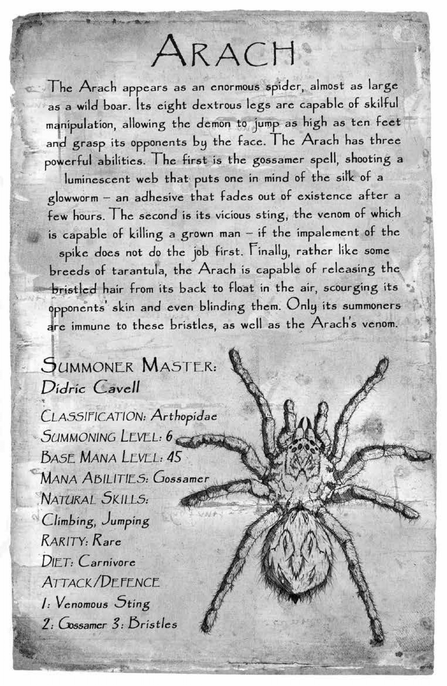 Arach
The Arach appears as an enormous spider, almost as large
as a wild boar. Its eight dextrous legs are capable of skilful
manipulation, allowing the demon to jump as high as ten feet
and grasp its opponents by the face. The Arach has three
powerful abilities. The first is the gossamer spell, shooting a
luminescent web that puts one in mind of the silk of a
glowworm – an adhesive that fades out of existence after a
few hours. The second is its vicious sting, the venom of which
is capable of killing a grown man – if the impalement of the
spike does not do the job first. Finally, rather like some
breeds of tarantula, the Arach is capable of releasing the
bristled hair from its back to float in the air, scourging its
opponents' skin and even blinding them. Only its summoners
are immune to these bristles, as well as the Arach's venom.
Summoner Master:
Didric Cavell
Classification: Arthopidae
Summoning Level: 6
Base Mana Level: 45
Mana Abilities: Gossamer
Natural Skills:
Climbing, Jumping
Rarity: Rare
Diet: Carnivore
Attack/Defence
1: Venomous Sting
2: Gossamer 3: Bristles